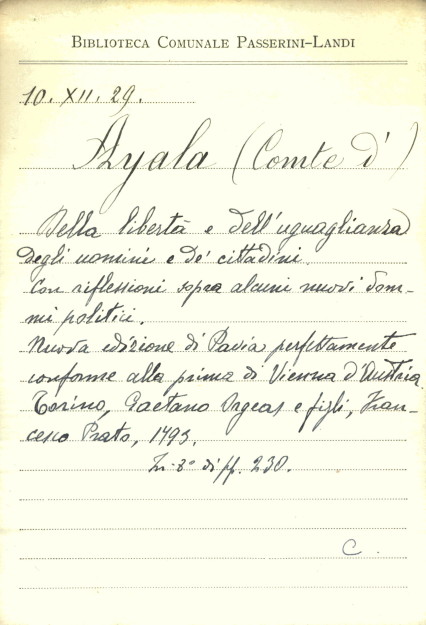 BIBLIOTECA COMUNALE PASSERINI-LANDI
10. XII. 29.
Ayala (Comte d')
Della libertà e dell'uguaglianza
degli uomini e de' cittadini.
Con riflessioni sopra alcuni nuovi dom-
mi politici.
Nuova edizione di Pavia perfettamente
conforme alla prima di Vienna d'Austria.
Torino, Gaetano Orgeas e figli, Fran-
cesco Prato, 1793.
In-8° di pp. 230.
C.